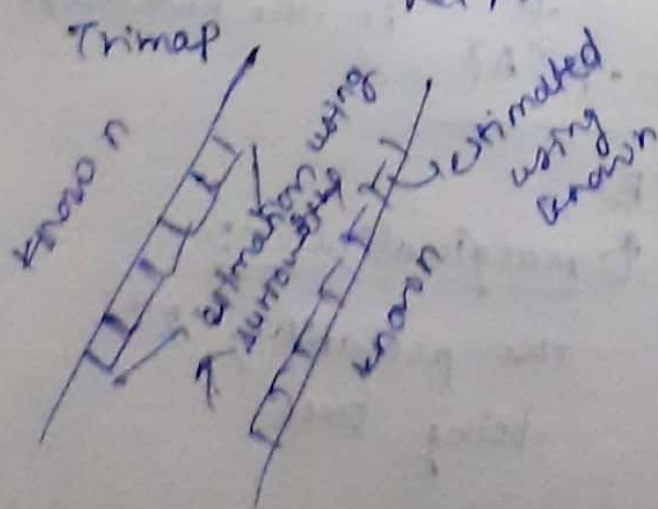 Trimap
known
estimation using
surrounding
known
estimated
using
known